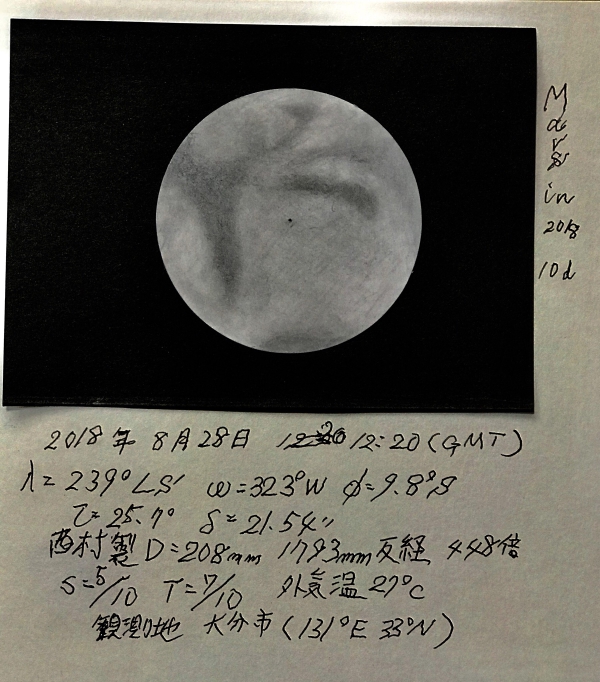 Mars in 2018 10d
2018年 8月28日 12:20 (GMT)
λ=239°LS ω=323°W φ=9.8°S
τ=25.7° δ=21.54"
西村製 D=208mm 1793mm反経 448倍
S=5/10 T=7/10 外気温 27°C
観測地 大分市 (131°E 33°N)